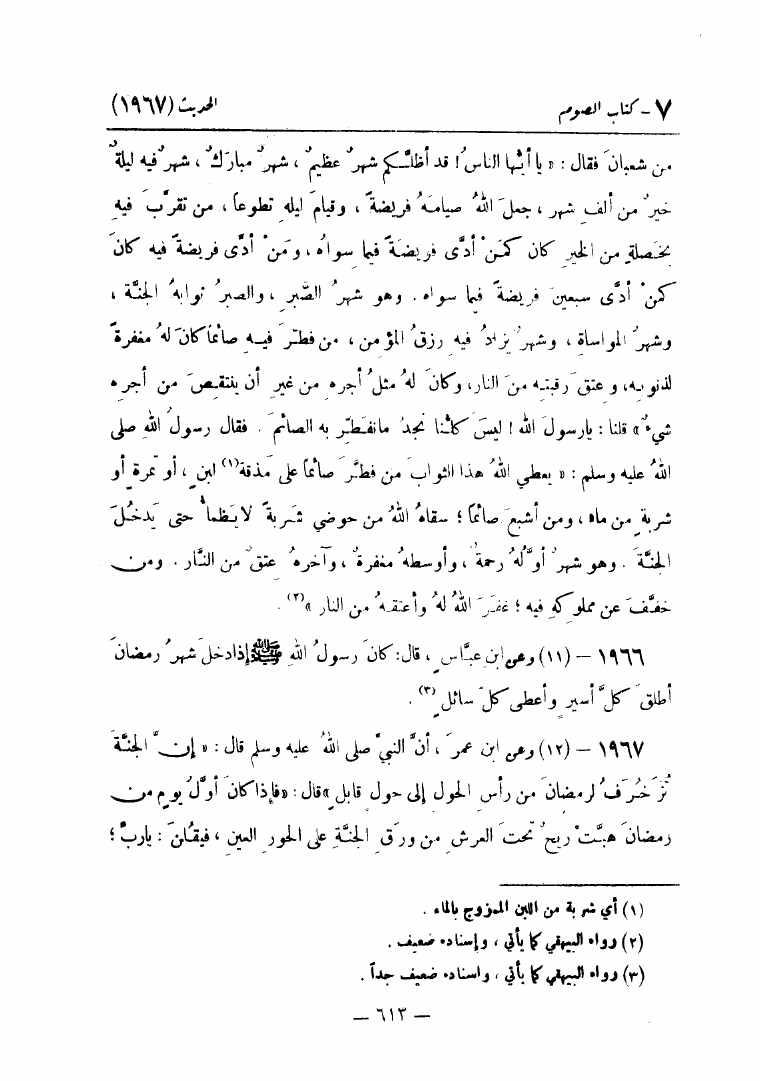 ٧ - كتاب الصوم الحديث (١٩٦٧)
من شعبانَ فقال : « يا أيُّها الناسُ ! قد أظلَّكم شهرٌ عظيمٌ ، شهرٌ مباركٌ ، شهرٌ فيه ليلةٌ
خيرٌ من ألفِ شهر ، جعلَ اللهُ صيامَهُ فريضةً ، وقيامَ ليلهِ تطوعاً ، من تقرَّبَ فيه
بخصلةٍ من الخيرِ كان كمَنْ أدَّى فريضةً فيما سواهُ ، ومَنْ أدَّى فريضةً فيه كانَ
كمَنْ أدَّى سبعينَ فريضةً فيما سواه . وهو شهرُ الصَّبرِ ، والصبرُ ثوابهُ الجنَّة ،
وشهرُ المواساةِ ، وشهرٌ يزادُ فيه رزقُ المؤمن ، من فطَّرَ فيه صائمًا كانَ لهُ مغفرةً
لذنوبِه، وعتقَ رقبتِه منَ النار، وكانَ لهُ مثلُ أجرهِ من غيرِ أن ينتقِصَ من أجرِه
شيءٌ » قلنا : يارسولَ الله ! ليسَ كلُّنا نجدُ مانفطِّرُ به الصائمَ . فقال رسولُ اللهِ صلى
اللهُ عليه وسلم : « يعطي اللهُ هذا الثوابَ من فطَّرَ صائماً على مَذقة(١) لبنٍ ، أو تمرةٍ أو
شربةٍ من ماءٍ ، ومن أشبعَ صائمًا ؛ سقاهُ اللهُ من حوضي شَربةً لايَظمأُ حتى يَدخُلَ
الجنَّةَ . وهو شهرٌ أوَّلُهُ رحمةٌ ، وأوسطهُ مغفرةٌ ، وآخرهُ عتقٌ من النَّار . ومن
خفَّفَ عن مملوكِه فيه ؛ غفرَ اللهُ لهُ وأعتقهُ من النار »(٢) .
١٩٦٦ - (١١) وعن ابنِ عبَّاسٍ ، قال: كانَ رسولُ اللهِ ﷺ إذادخلَ شهرُ رمضانَ
أطلقَ كلَّ أسيرٍ وأعطى كلَّ سائلٍ(٣) .
١٩٦٧ - (١٢) وعن ابن عمرَ ، أنَّ النبيَّ صلى اللهُ عليه وسلم قال : « إنَّ الجنَّةَ
تُزَخرَفُ لرمضانَ من رأسِ الحولِ إلى حولِ قابلٍ »قال : «فإذا كانَ أوَّلُ يومٍ من
رمضانَ هبَّتْ ريحٌ تحتَ العرشِ من ورَقِ الجنَّةِ على الحورِ العينِ ، فيقُلنَ : ياربِّ ؛
(١) أي شربة من اللبن الممزوج بالماء .
(٢) رواه البيهقي كما يأتي ، وإسناده ضعيف .
(٣) رواه البيهقي كما يأتي ، واسناده ضعيف جداً .
— ٦١٣ —